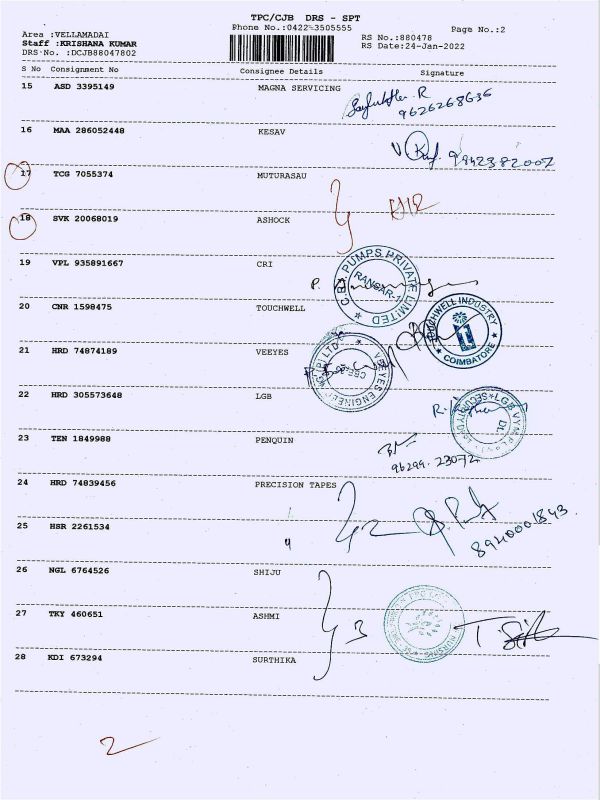 TPC/CJB DRS - SPT
Phone No.:0422-3505555
Page No.:2
Area :VELLAMADAI
Staff :KRISHANA KUMAR
DRS-No. :DCJB88047802
RS No.:880478
RS Date:24-Jan-2022
S No Consignment No Consignee Details Signature
15 ASD 3395149 MAGNA SERVICING
9626268636
16 MAA 286052448 KESAV
9942382007
17 TCG 7055374 MUTURASAU
18 SVK 20068019 ASHOCK
19 VPL 935891667 CRI
PUMPS PRIVATE LIMITED
20 CNR 1598475 TOUCHWELL
TOUCHWELL INDUSTRY
COIMBATORE
21 HRD 74874189 VEEYES
22 HRD 305573648 LGB
R.
23 TEN 1849988 PENQUIN
96299. 23072
24 HRD 74839456 PRECISION TAPES
25 HSR 2261534
4
8940001843.
26 NGL 6764526 SHIJU
27 TKY 460651 ASHMI
3
28 KDI 673294 SURTHIKA
2